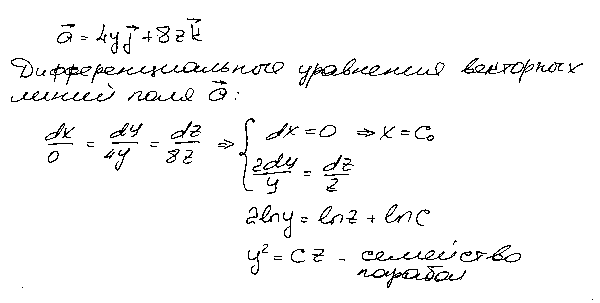 a⃗ = 4yj⃗ + 8zk⃗
Дифференциальные уравнения векторных
линий поля a⃗:
dx/0 = dy/4y = dz/8z ⇒ { dx = 0 ⇒ x = C₀
2dy/y = dz/z
2lny = lnz + lnC
y² = Cz - семейство
парабол